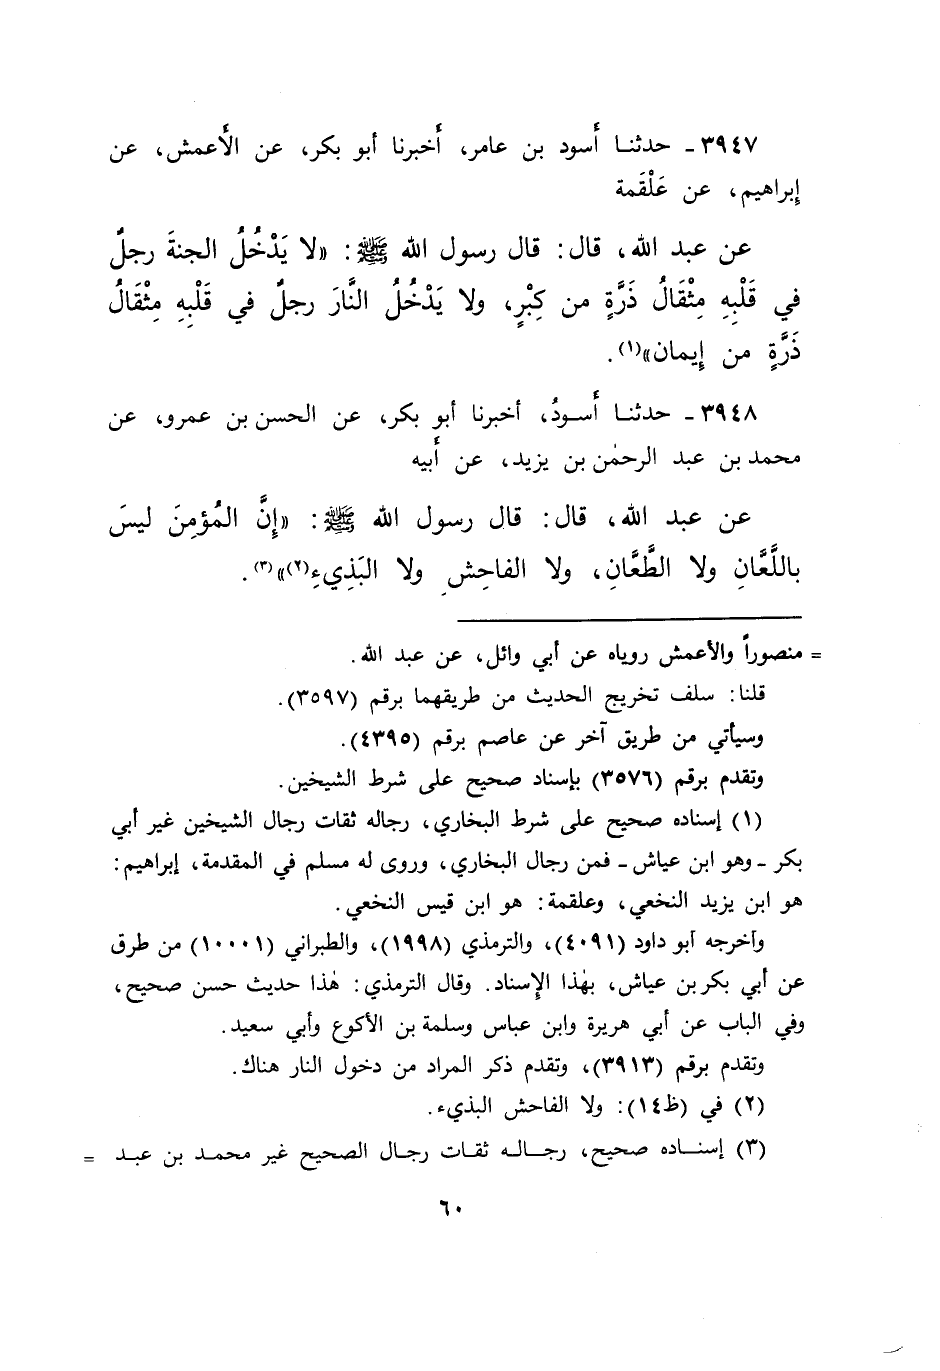 ٣٩٤٧ ـ حدثنا أَسود بن عامر، أَخبرنا أبو بكر، عن الأَعمش، عن
إبراهيم، عن عَلْقَمة
عن عبد الله، قال: قال رسول الله ﷺ: «لا يَدْخُلُ الجنةَ رجلٌ
في قَلْبِهِ مِثْقَالُ ذَرَّةٍ من كِبْرٍ، ولا يَدْخُلُ النَّارَ رجلٌ في قَلْبِهِ مِثْقَالُ
ذَرَّةٍ من إِيمان»(١).
٣٩٤٨ ـ حدثنا أَسودُ، أخبرنا أبو بكر، عن الحسن بن عمرو، عن
محمد بن عبد الرحمٰن بن يزيد، عن أَبيه
عن عبد الله، قال: قال رسول الله ﷺ: «إِنَّ المُؤمِنَ ليسَ
باللَّعَّانِ ولا الطَّعَّانِ، ولا الفاحِشِ ولا البَذِيءِ(٢)»(٣).
= منصوراً والأعمش روياه عن أبي وائل، عن عبد الله.
قلنا: سلف تخريج الحديث من طريقهما برقم (٣٥٩٧).
وسيأتي من طريق آخر عن عاصم برقم (٤٣٩٥).
وتقدم برقم (٣٥٧٦) بإسناد صحيح على شرط الشيخين.
(١) إسناده صحيح على شرط البخاري، رجاله ثقات رجال الشيخين غير أبي
بكر ـ وهو ابن عياش ـ فمن رجال البخاري، وروى له مسلم في المقدمة، إبراهيم:
هو ابن يزيد النخعي، وعلقمة: هو ابن قيس النخعي.
وأخرجه أبو داود (٤٠٩١)، والترمذي (١٩٩٨)، والطبراني (١٠٠٠١) من طرق
عن أبي بكر بن عياش، بهٰذا الإسناد. وقال الترمذي: هٰذا حديث حسن صحيح،
وفي الباب عن أبي هريرة وابن عباس وسلمة بن الأكوع وأبي سعيد.
وتقدم برقم (٣٩١٣)، وتقدم ذكر المراد من دخول النار هناك.
(٢) في (ظ١٤): ولا الفاحش البذيء.
(٣) إسناده صحيح، رجاله ثقات رجال الصحيح غير محمد بن عبد =
٦٠